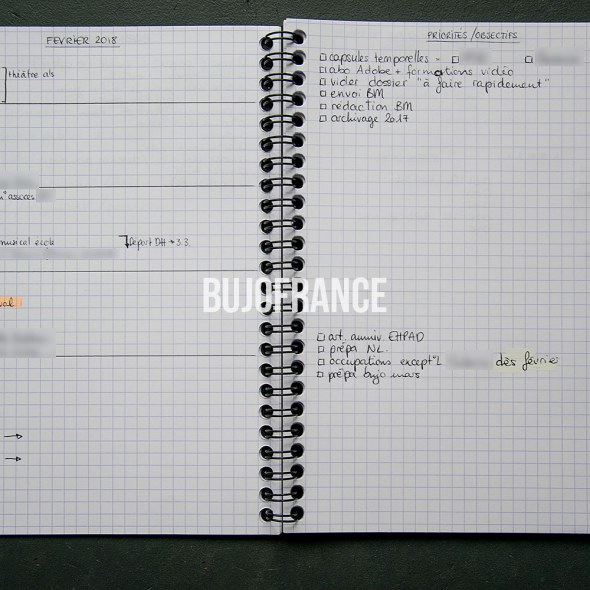 FEVRIER 2018
théâtre als
assoces
musical école
Départ DH → S.3.
val
PRIORITÉS/OBJECTIFS
capsules temporelles -
abo Adobe + formations vidéo
vider dossier "à faire rapidement"
envoi BM
redaction BM
archivage 2017
BUJOFRANCE
art. anniv EHPAD
prépa NL.
occupations except°L dès février
prépa bujo mars